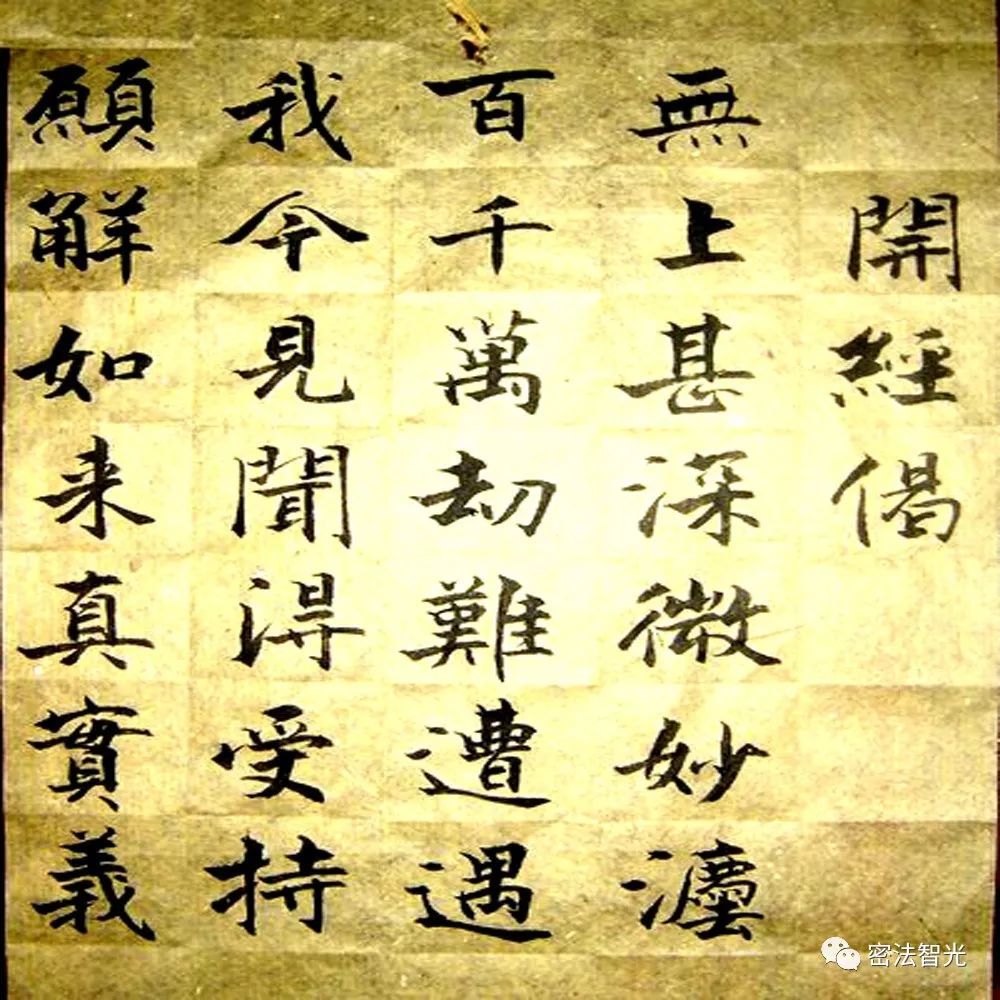 開經偈
無上甚深微妙灋
百千萬劫難遭遇
我今見聞得受持
願解如来真實義
密法智光